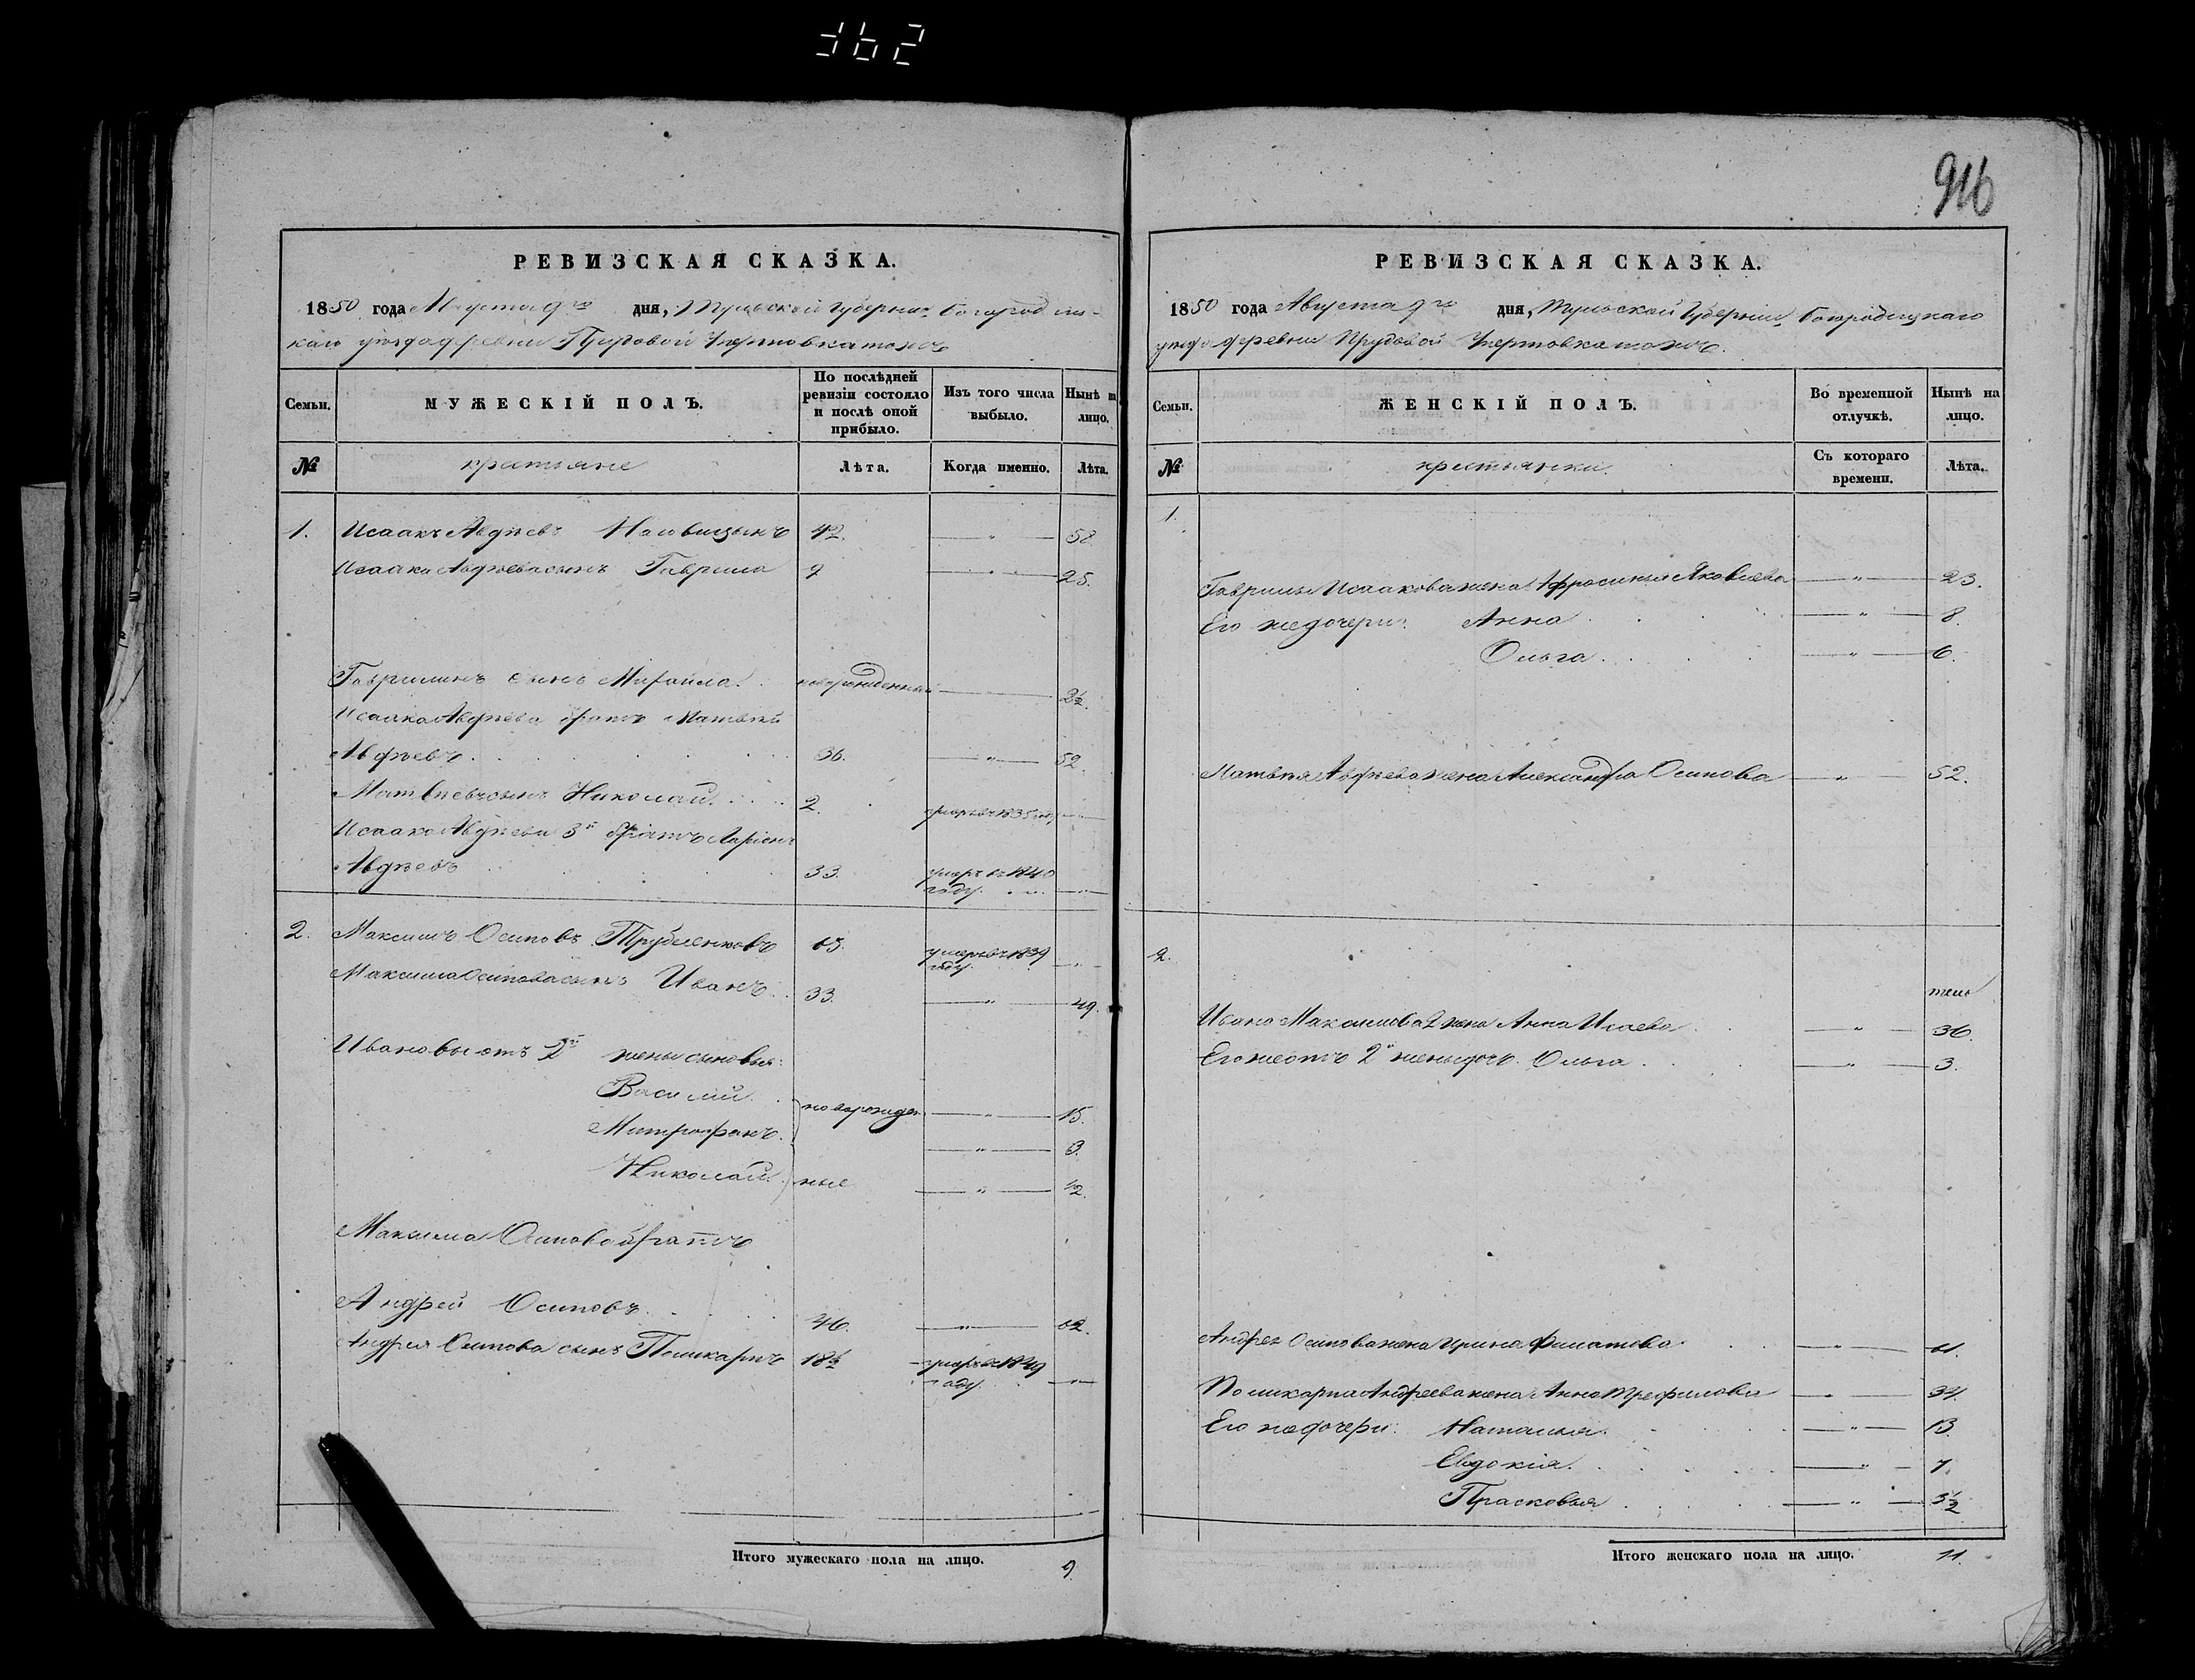 362
916
РЕВИЗСКАЯ СКАЗКА.
1850 года Августа 9го дня, Тульской Губернии Богородиц-
каго уѣзда деревни Прудовой Чертовка тожъ
Семьи.
МУЖЕСКІЙ ПОЛЪ.
По послѣдней ревизіи состояло и послѣ оной прибыло.
Изъ того числа выбыло.
Нынѣ на лицо.
№
крестьяне
Лѣта.
Когда именно.
Лѣта.
1. Исаакъ Авдѣевъ 42. — " — 58.
Исаака Авдѣева сынъ Гаврила 9 — " — 25.
Гаврилинъ сынъ Михайла. новорожденный — " — 2½.
Исаака Авдѣева братъ Матвѣй
Авдѣевъ. 36. — " — 52.
Матвѣевъ сынъ Николай. 2. умеръ въ 1835 году — " —
Исаака Авдѣева 3й братъ Ларіонъ
Авдѣевъ 33. умеръ въ 1840
году. — " —
2. Максимъ Осиповъ Трубленковъ 65. умеръ въ 1839
году. — " —
Максима Осипова сынъ Иванъ. 33. — " — 49.
Ивановы отъ 2й жены сыновья:
Василій. новорожден — " — 15.
Митрофанъ. — " — 3.
Николай. ные — " — ½.
Максима Осипова братъ
Андрей Осиповъ. 46. — " — 62.
Андрея Осипова сынъ Поликарпъ 18½ умеръ въ 1849
году. — " —
Итого мужескаго пола на лицо. 9.
РЕВИЗСКАЯ СКАЗКА.
1850 года Августа 9го дня, Тульской Губерніи, Богородицкаго
уѣзда деревни Прудовой Чертовка тожъ.
Семьи.
ЖЕНСКІЙ ПОЛЪ.
Во временной отлучкѣ.
Нынѣ на лицо.
№
крестьянки.
Съ котораго времени.
Лѣта.
1.
Гаврилы Исаакова жена Афросинья Яковлева — " — 23.
Его же дочери: Анна — " — 8.
Ольга. — " — 6.
Матвѣя Авдѣева жена Александра Осипова — " — 52.
2.
Ивана Максимова 2 жена Анна Исаева — " — 36.
Его же отъ 2й жены дочь. Ольга — " — 3.
Андрея Осипова жена Ирина Филатова. — " — 61.
Поликарпа Андреева жена Анна Трефилова — " — 34.
Его же дочери: Наталья. — " — 13.
Евдокія. — " — 7.
Прасковья — " — 3½
Итого женскаго пола на лицо. 11.